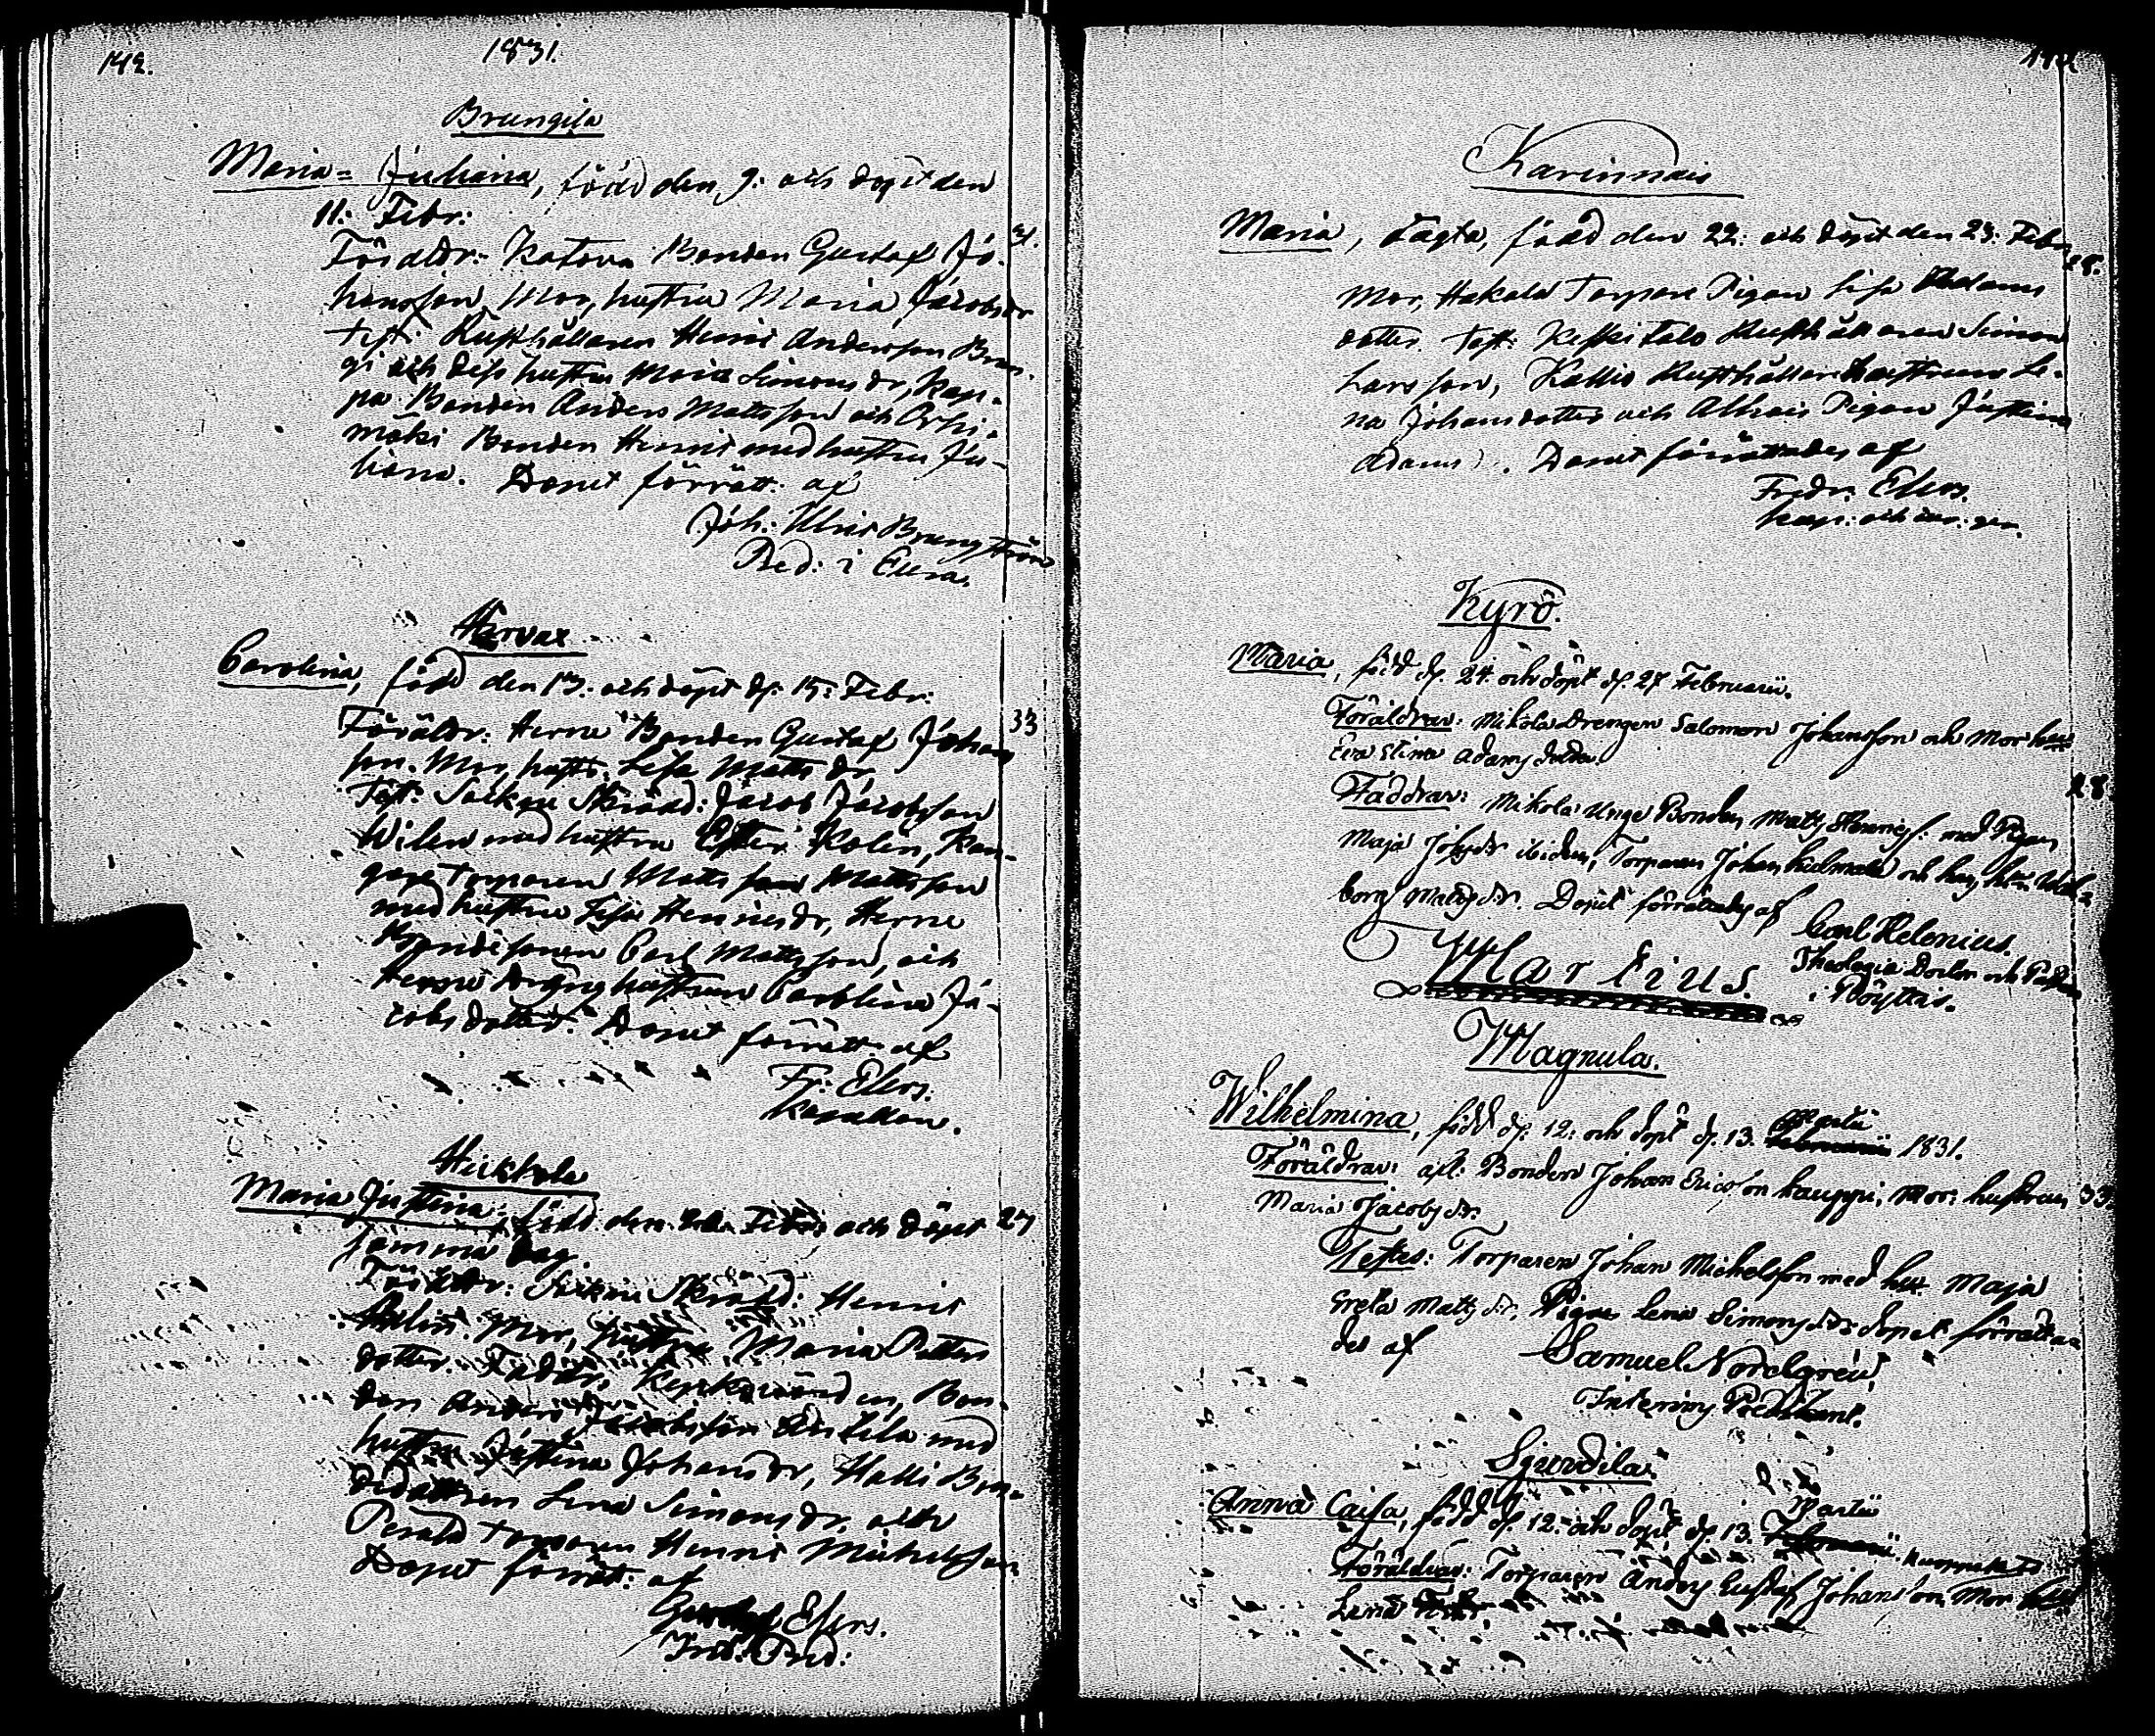 142.
1831.
Brungila
Maria=Juliana, född den 9. och döpt den
11. Febr:
Föräldr: Katova Bonden Gustaf Jo- 31.
hansson, Mor, hustru Maria Jacobsdr
Test: Rusthållaren Henric Andersson Brun-
gi och dess hustru Maria Simonsdr, Kap-
pa Bonden Anders Mattsson och
mäki Bonden Henric med hustru Ju-
liana. Dopet förrätt: af
Joh: Ulric Brungström
Pred: i Eura.
Carolina, född den 13. och döpt d. 15. Febr:
Föräldr: Herne Bonden Gustaf Johans- 33
son. Mor, hustr. Lisa Mattsdr
Test: Socken Skrädd: Jacob Jacobsson
Wilen med hustru Kolen, Kan-
Torparen Matts Mattsson
med hustru Lisa Henricsdr, Herne
Bondesonen Carl Mattsson, och
Herne drängshustrun Carolina Ja-
cobsdotter. Dopet förrätt: af
Fr: Elers.
Kapellan.
Heickola
Maria Justina, född den Febr: och döpt 27
samma dag.
Föräldr: Sockne Skrädd: Henric
Mor, hustru Maria Petters
dotter. Faddr: Kyrkovärden, Bon-
den Anders Jacobsson Anttila med
hustru Justina Johansdr, Halli Bon-
dedottren Lena Simonsdr, och
Perälä Torparen Henric Michelsson
Dopet förrätt: af
Elers.
Pred:
Karinnais
Maria, oägta, född den 22. och döpt den 23. Febr
28.
Mor, Hakala Torpare Pigan Lisa Adams
dotter. Test: Keskitalo Rusthållaren Simon
Larsson, Kallio Rusthållare hustrun Le-
na Johansdotter och Pigan Justina
Adamsd. Dopet förrättades af
Fredr: Elers.
Kap: och
Kyrö.
Maria, född d. 24 och döpt d. 27 Februarii.
Föräldrar: Mikola Drengen Salomon Johansson och Mor hu:
Eva Stina Adamsdotter.
28
Faddrar: Mikola Unge Bonden Matts Henricss: med Pigan
Maja Johsdr ibidem, Torparen Johan och hans h:u Wal-
borg Mattsdr. Dopet förrättades af Carl Helenius.
Theologiæ Doctor och Pastor
i Pöytis.
Martius.
Magnula.
Wilhelmina, född d. 12. och döpt d. 13. Martii 1831.
Föräldrar: afl: Bonden Johan Ericsson Kauppi, Mor: hustrun 33.
Maria Jacobsdr.
Testes: Torparen Johan Michelsson med hu: Maja
Greta Mattsdr, Pigan Lena Simonsdr. dopet förrätta-
des af Samuel Nordgren,
Interims Predikant.
Sjundila
Anna Caisa, född d. 12. och döpt d. 13. Martii
Föräldrar: Torparen Anders Gustaf Johansson, Mor
Lena